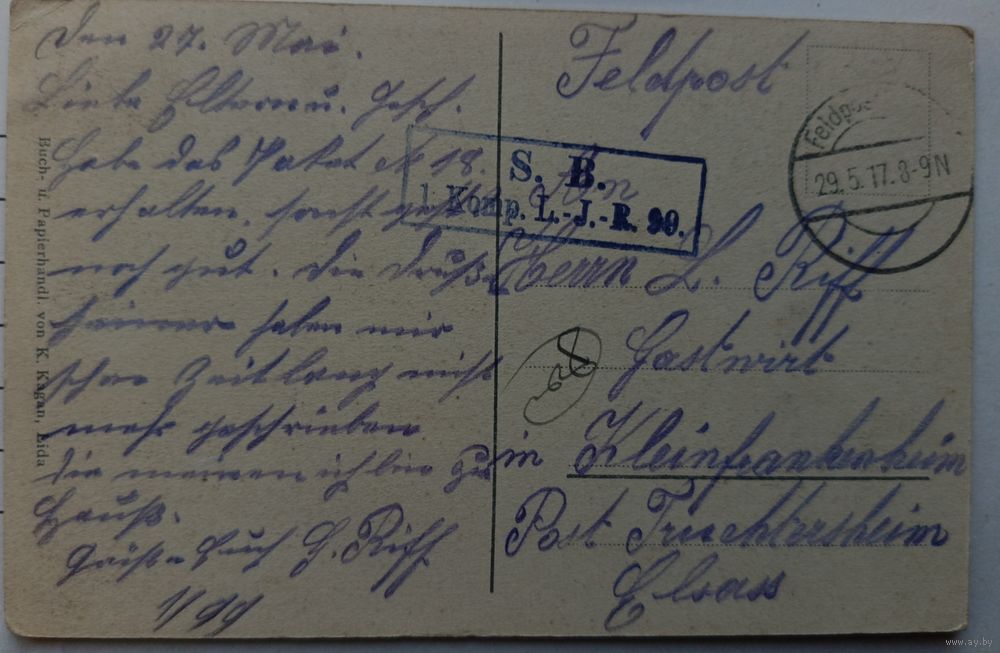 Den 27. Mai.
Liebe Eltern u. Gesch.
Habe das Paket N 18.
erhalten, sonst geht
noch gut. Die
heimer haben mir
schon Zeitlang nicht
mehr geschrieben
die meinen ich bin zu
Hauß.
G. Riff
1/99
Buch- u. Papierhandl. von K. Kagan, Lida
Feldpost
S. B.
1. Komp. L.-J.-R. 99.
An
Herrn L. Riff
Gastwirt
in Kleinfrankenheim
Post Truchtersheim
Elsass
29.5.17.8-9N
www.ay.by